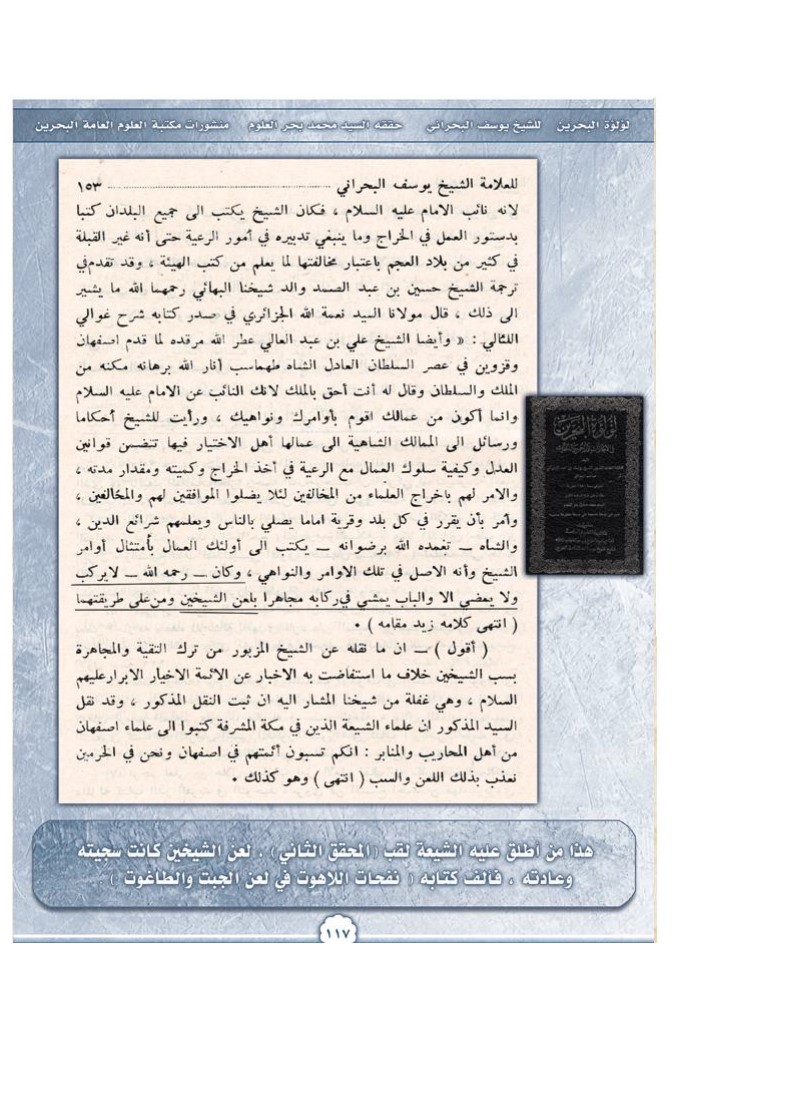 لؤلؤة البحرين للشيخ يوسف البحراني حققه السيد محمد بحر العلوم منشورات مكتبة العلوم العامة البحرين
للعلامة الشيخ يوسف البحراني ........................ ١٥٣
لانه نائب الامام عليه السلام ، فكان الشيخ يكتب الى جميع البلدان كتبا
بدستور العمل في الخراج وما ينبغي تدبيره في أمور الرعية حتى أنه غير القبلة
في كثير من بلاد العجم باعتبار مخالفتها لما يعلم من كتب الهيئة ، وقد تقدم في
ترجمة الشيخ حسين بن عبد الصمد والد شيخنا البهائي رحمهما الله ما يشير
الى ذلك ، قال مولانا السيد نعمة الله الجزائري في صدر كتابه شرح غوالي
اللئالي : « وأيضا الشيخ علي بن عبد العالي عطر الله مرقده لما قدم اصفهان
وقزوين في عصر السلطان العادل الشاه طهماسب أنار الله برهانه مكنه من
الملك والسلطان وقال له أنت أحق بالملك لانك النائب عن الامام عليه السلام
وانما أكون من عمالك اقوم بأوامرك ونواهيك ، ورأيت للشيخ أحكاما
ورسائل الى الممالك الشاهية الى عمالها أهل الاختيار فيها تتضمن قوانين
العدل وكيفية سلوك العمال مع الرعية في أخذ الخراج وكميته ومقدار مدته ،
والامر لهم باخراج العلماء من المخالفين لئلا يضلوا الموافقين لهم والمخالفين ،
وأمر بأن يقرر في كل بلد وقرية اماما يصلي بالناس ويعلمهم شرائع الدين ،
والشاه ــ تغمده الله برضوانه ــ يكتب الى أولئك العمال بأمتثال أوامر
الشيخ وأنه الاصل في تلك الاوامر والنواهي ، وكان ــ رحمه الله ــ لايركب
ولا يمضي الا والباب يمشي في ركابه مجاهرا بلعن الشيخين ومن على طريقتهما
( انتهى كلامه زيد مقامه ) .
( أقول ) ــ ان ما نقله عن الشيخ المزبور من ترك التقية والمجاهرة
بسب الشيخين خلاف ما استفاضت به الاخبار عن الائمة الاخيار الابرار عليهم
السلام ، وهي غفلة من شيخنا المشار اليه ان ثبت النقل المذكور ، وقد نقل
السيد المذكور ان علماء الشيعة الذين في مكة المشرفة كتبوا الى علماء اصفهان
من أهل المحاريب والمنابر : انكم تسبون أئمتهم في اصفهان ونحن في الحرمين
نعذب بذلك اللعن والسب ( انتهى ) وهو كذلك .
لؤلؤة البحرين
هذا من أطلق عليه الشيعة لقب (المحقق الثاني) ، لعن الشيخين كانت سجيته
وعادته ، فألف كتابه ( نفحات اللاهوت في لعن الجبت والطاغوت )
١١٧